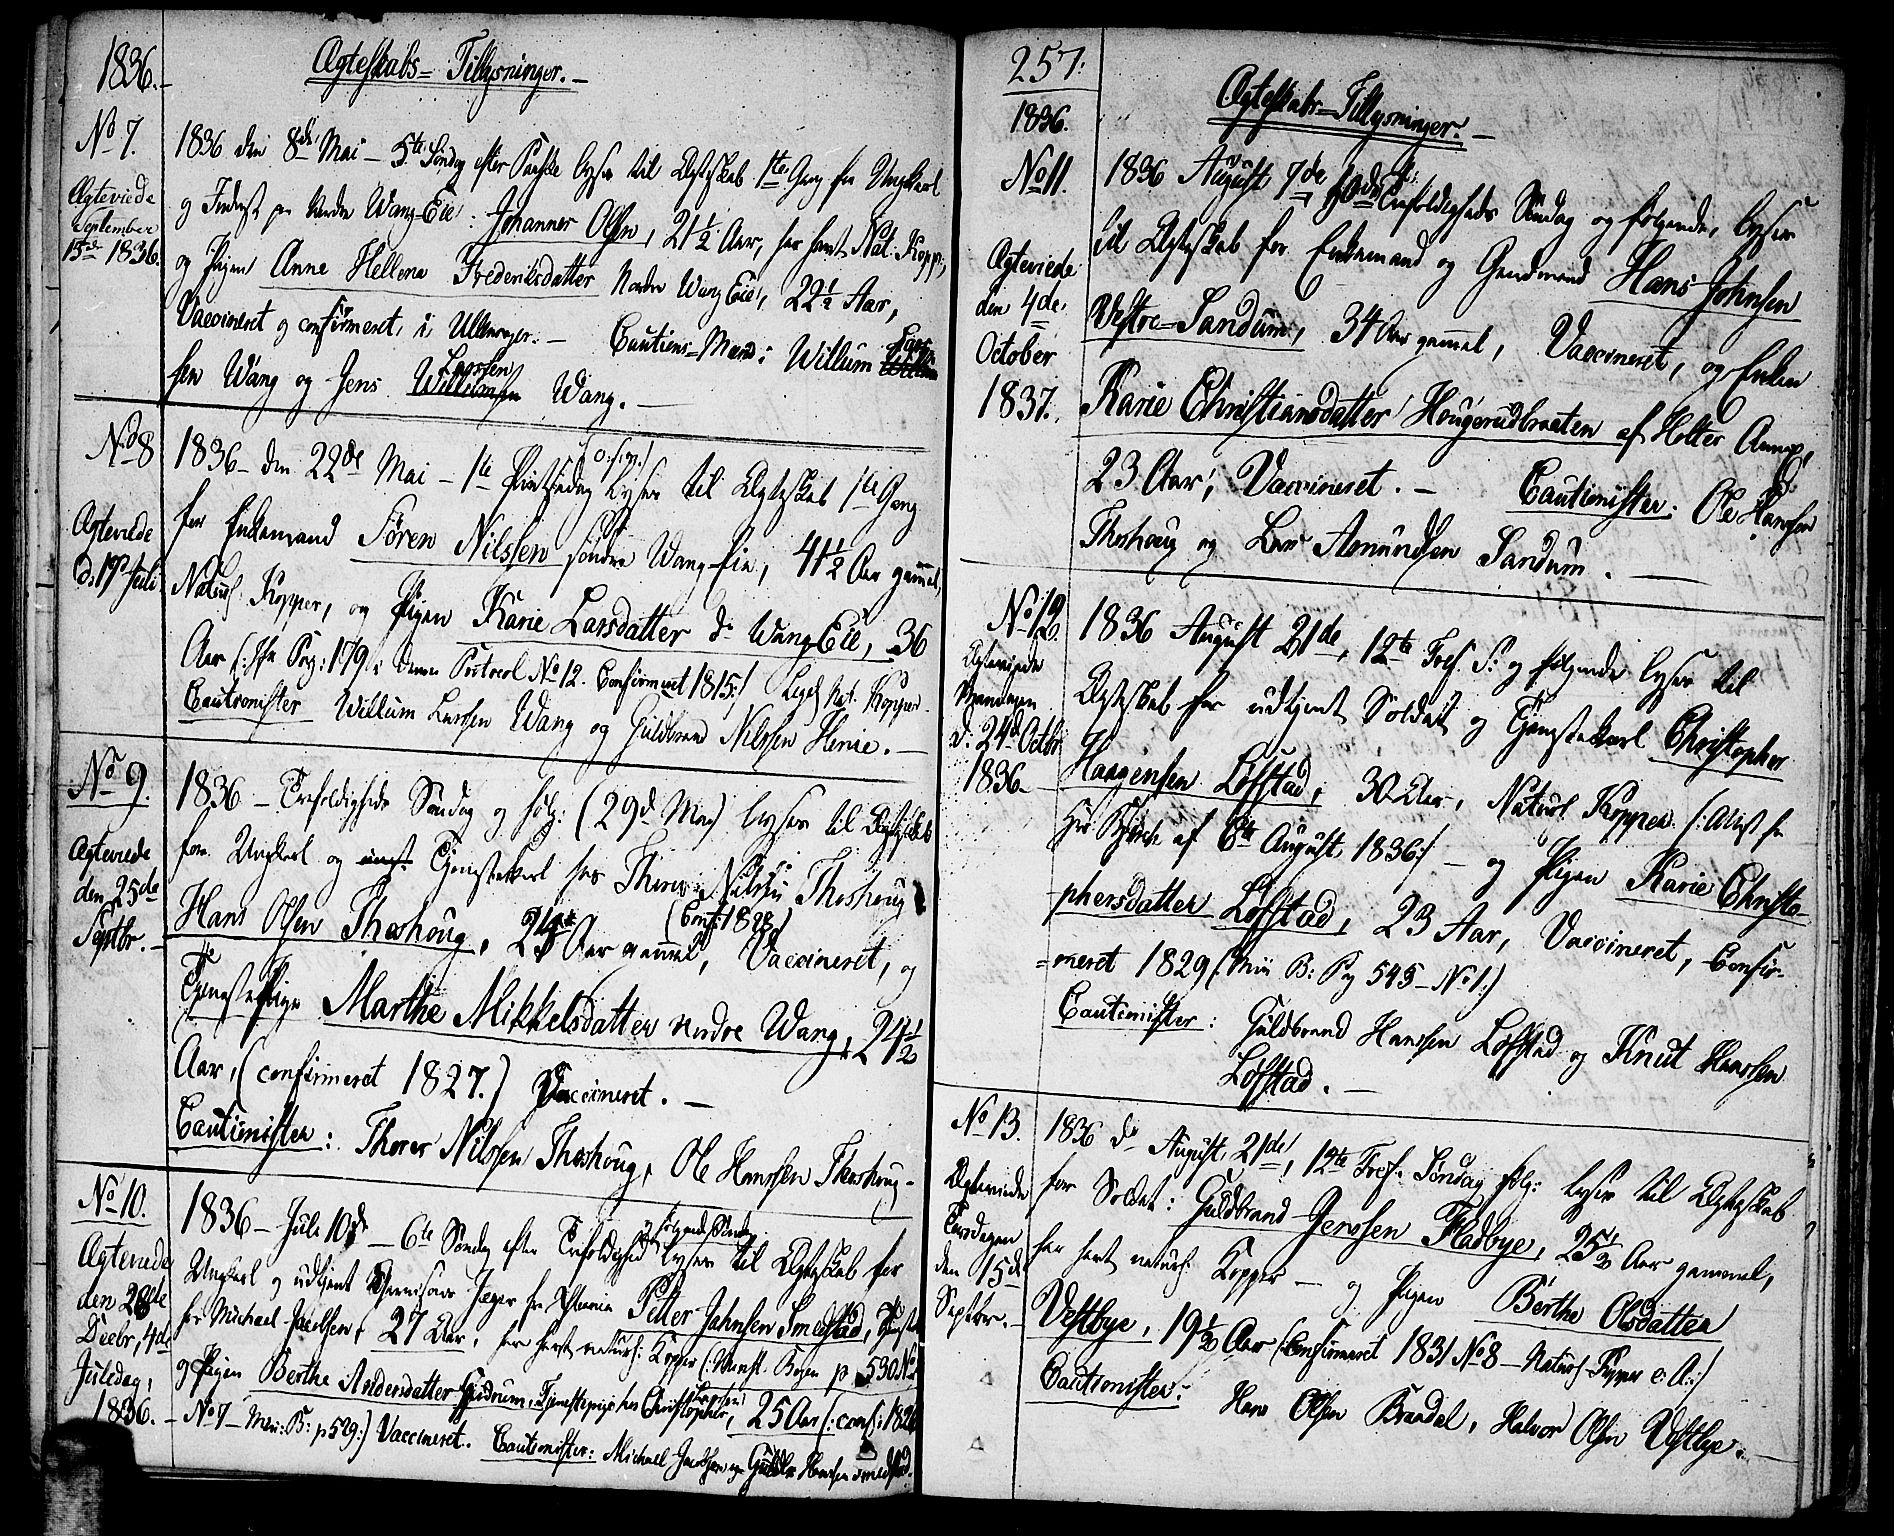 1836.
Ægteskabs-Tillysninger.
No 7.
Ægteviede
September
15de 1836.
1836 den 8de Mai - 5te Søndag efter Paaske lyser til Ægteskab 1te Gang for Ungkarl
og Inderst paa Nordre Wang-Eie: Johannes Olsen, 21 1/2 Aar, har havt Nat. Kopper,
og Pigen Anne Hellena Frederiksdatter Nordre Wang Eie, 22 1/2 Aar,
Vaccineret og confirmeret i Ullensager. - Cautions-Mænd: Willum Lars
sen Wang og Jens Larssen Wang. -
No 8
Ægteviede
d. 19de Juli
1836 - den 22de Mai - 1te Pintsedag (o: s: v:) lyser til Ægteskab 1te Gang
for Enkemand Søren Nilssen søndre Wang-Eie, 41 1/2 Aar gammel,
Naturl. Kopper, og Pigen Karie Larsdatter do Wang Eie, 36
Aar (: Pag: 179: No 12. Confirmeret 1815:) Nat. Kopper.
Cautionister Willum Larssen Wang og Guldbrand Nilssen Henie. -
No 9.
Ægteviede
den 25de
Septbr. -
1836 - Trefoldigheds Søndag og følg: (29d Mai) lyser til Ægteskab
for Ungkarl og Tjenestekarl hos Thorer Nilssen Thoshoug
Hans Olsen Thoshoug, Aar gammel, (Conf: 1828) Vaccineret, og
Tjenestepige Marthe Mikkelsdatter nordre Wang, 24 1/2
Aar, (confirmeret 1827.) Vaccineret. -
Cautionister: Thorer Nilssen Thoshoug, Ole Hanssen Thoshoug -
No 10.
Ægteviede
den 28de
Decbr, 4de
Juledag,
1836. -
1836 - Juli 10de - 6te Søndag efter Trefoldighed og følgende Søndag lyser til Ægteskab for
Ungkarl og udtjent Jæger Petter Jahnsen Smedstad, Tjenst
for Michael Jacobsen, 27 Aar, har havt naturl: Kopper (: Bogen p 530 No
og Pigen Berthe Andersdatter Tjenestepige hos Christopher, 25 Aar (: conf: 1826
- No 7 - Min: B: p 529:) Vaccineret. Cautionister: Michael Jacobsen og Guldbr. Hanssen Smedstad.
257.
1836.
Ægteskabs-Tillysninger. -
No 11.
Ægteviede
den 4de
October
1837.
1836 August 7de, 10de Trefoldigheds Søndag og følgende, lyses
til Ægteskab for Enkemand og Gaardmand Hans Johnsen
Vestre-Sandum, 34 Aar gammel, Vaccineret, og Enken
Karie Christiansdatter Hougerudbraaten af Holter Annex,
23 Aar, Vaccineret. - Cautionister: Ole Hanssen
Thoshoug og Lars Amundsen Sandum. -
No 12.
Ægteviede
Mandagen
d. 24de Octbr
1836 -
1836 August 21de, 12te Tref. S: og følgende lyser til
Ægteskab for udtjent Soldat og Tjenestekarl Christopher
Haagensen Løfstad, 30 Aar, Naturl. Kopper (: Attest fra
af 6te August 1836:) - og Pigen Karie Christo-
phersdatter Løfstad, 23 Aar, Vaccineret, Confir-
=meret 1829 (Min B: Pag 545 - No 1:)
Cautionister: Guldbrand Hanssen Løfstad og Knut Hanssen
Løfstad. -
No 13.
Ægteviede
Torsdagen
den 15de
Septbr. -
1836 d. August 21de, 12te Tref. Søndag følg: lyser til Ægteskab
for Soldat: Guldbrand Jenssen Fladbye, 25 1/2 Aar gammel,
har havt naturl: Kopper - og Pigen Berthe Olsdatter
Vestbye, 19 1/2 Aar (: Confirmeret 1831 No 8 - Naturl. Kopper :)
Cautionister: Hans Olsen Brandal, Halvor Olsen Vestbye. -